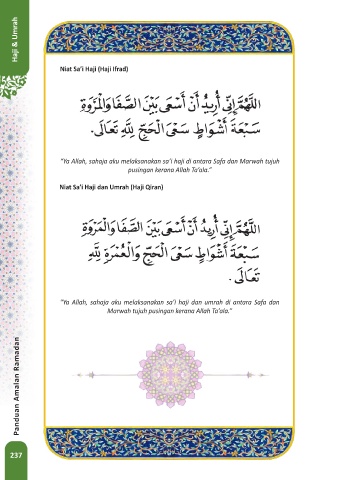 Haji & Umrah
Niat Sa'i Haji (Haji Ifrad)
اَللَّهُمَّ إِنِّي أُرِيْدُ أَنْ أَسْعَى بَيْنَ الصَّفَا وَالْمَرْوَةِ
سَبْعَةَ أَشْوَاطٍ سَعْيَ الْحَجِّ لِلَّهِ تَعَالَى.
"Ya Allah, sahaja aku melaksanakan sa'i haji di antara Safa dan Marwah tujuh
pusingan kerana Allah Ta'ala."
Niat Sa'i Haji dan Umrah (Haji Qiran)
اَللَّهُمَّ إِنِّي أُرِيْدُ أَنْ أَسْعَى بَيْنَ الصَّفَا وَالْمَرْوَةِ
سَبْعَةَ أَشْوَاطٍ سَعْيَ الْحَجِّ وَالْعُمْرَةِ لِلَّهِ
تَعَالَى .
"Ya Allah, sahaja aku melaksanakan sa'i haji dan umrah di antara Safa dan
Marwah tujuh pusingan kerana Allah Ta'ala."
Panduan Amalan Ramadan
237